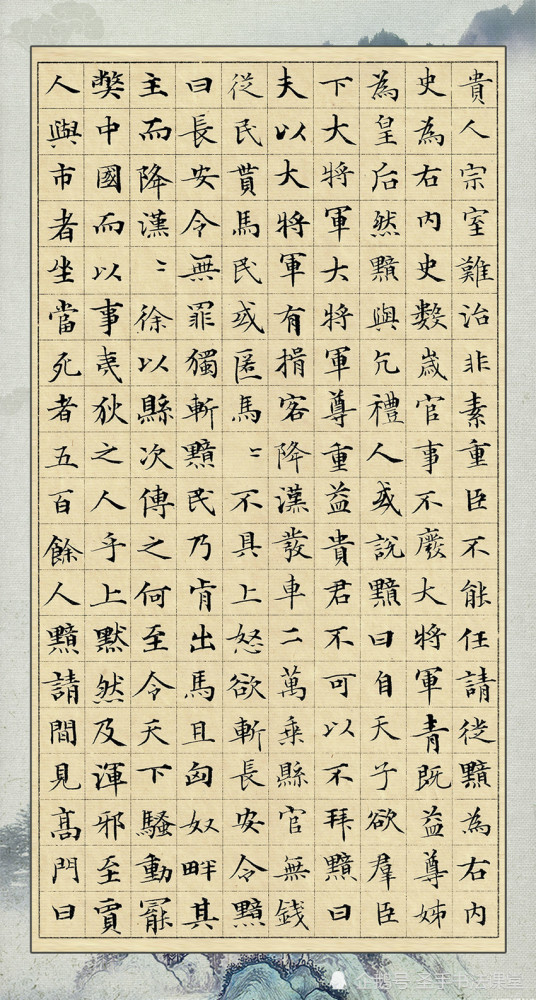 貴人宗室難治非素重臣不能任請從黯為右内
史為右内史數歲官事不廢大將軍青既益尊姊
為皇后然黯與亢禮人或說黯曰自天子欲羣臣
下大將軍大將軍尊重益貴君不可以不拜黯曰
夫以大將軍有揖客降漢發車二萬乘縣官無錢
從民貰馬民或匿馬〻不具上怒欲斬長安令黯
曰長安令無罪獨斬黯民乃肯出馬且匈奴畔其
主而降漢〻徐以縣次傳之何至令天下騷動罷
獘中國而以事夷狄之人乎上黙然及渾邪至賈
人與市者坐當死者五百餘人黯請間見髙門曰
企鹅号